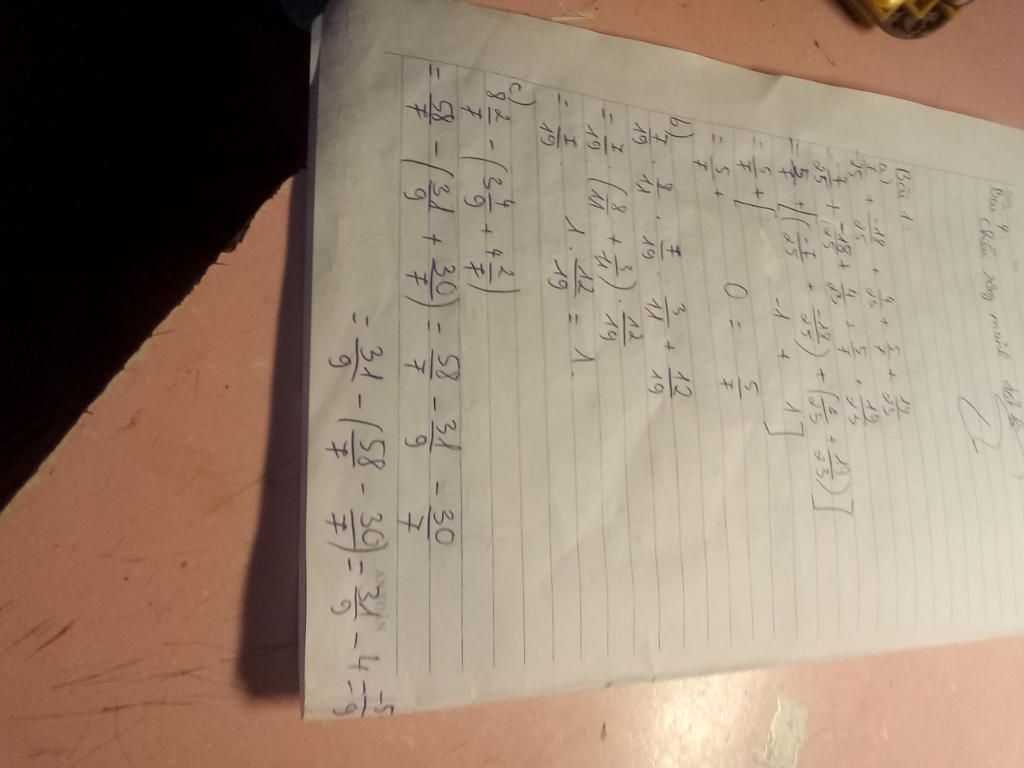 Bài 1:
a)
-7/25 + -18/25 + 4/23 + 5/7 + 19/23
= -7/25 + -18/25 + 4/23 + 5/7 + 19/23
= 5/7 + [(-7/25 + -18/25) + (4/23 + 19/23)]
= 5/7 + [ -1 + 1 ]
= 5/7 + 0 = 5/7
b)
7/19 . 8/11 . 7/19 . 3/11 + 12/19
= 7/19 . (8/11 + 3/11) . 12/19
= 7/19 . 1 . 12/19 = 1.
c)
8 2/7 - (3 4/9 + 4 2/7)
= 58/7 - (31/9 + 30/7) = 58/7 - 31/9 - 30/7
= 31/9 - (58/7 - 30/7) = 31/9 - 4 = -5/9